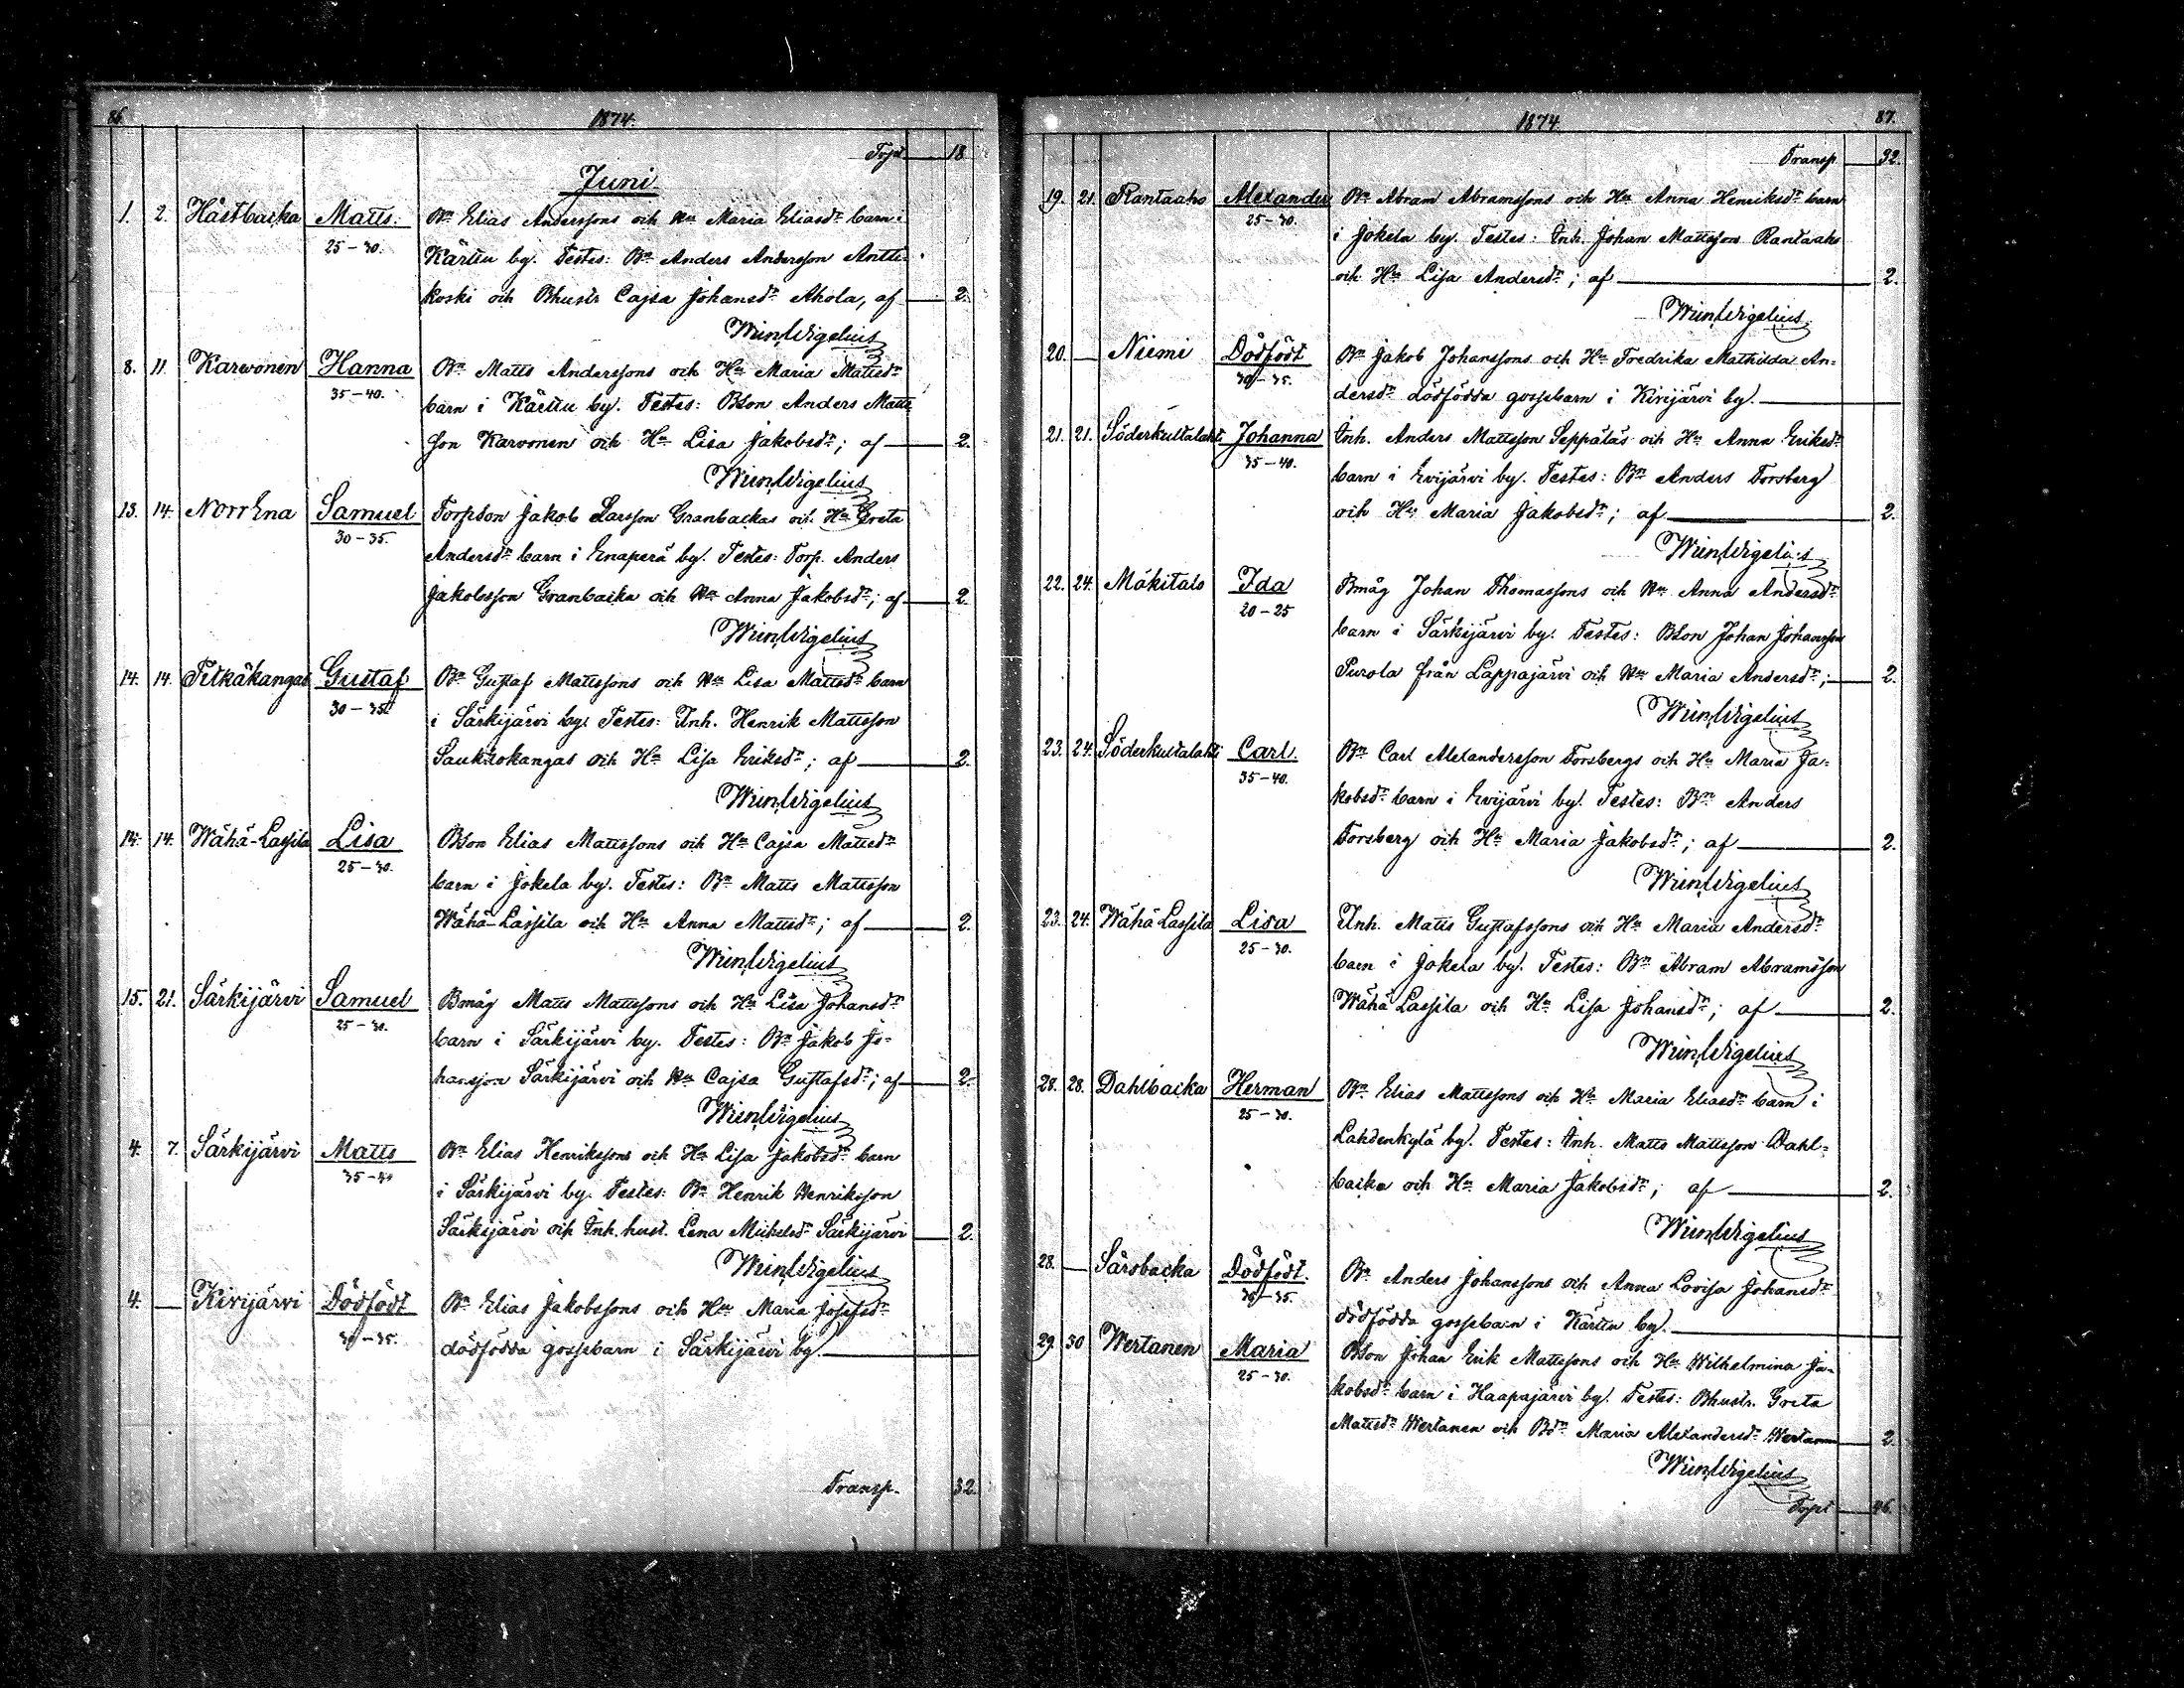 86. 1874.
Trpt 18
Juni
1. 2. Hästbacka Matts. Bn Elias Anderssons och Hu Maria Eliasdr barn i
25-30. Kärttu by. Testes: Bn Anders Andersson Antti-
koski och Bhustr Cajsa Johansdr Ahola, af 2.
Wm Wigelius
8. 11. Karwonen Hanna Bn Matts Anderssons och Hu Maria Mattsdr
35-40. barn i Kärttu by. Testes: BSon Anders Matts
son Karvonen och Hu Lisa Jakobsdr; af 2.
Wm Wigelius
13. 14. Norrena Samuel TorpSon Jakob Larsson Granbackas och Hu Greta
30-35. Andersdr barn i Enaperä by. Testes: Torp. Anders
Jakobsson Granbacka och Hu Anna Jakobsdr; af 2.
Wm Wigelius
14. 14. Pitkäkangas Gustaf Bn Gustaf Mattssons och Hu Lisa Mattsdr barn
30-35. i Särkijärvi by. Testes: Inh. Henrik Mattsson
Saukkokangas och Hu Lisa Eriksdr; af 2.
Wm Wigelius
14. 14. Wähä-Lassila Lisa BSon Elias Mattssons och Hu Cajsa Mattsdr
25-30. barn i Jokela by. Testes: Bn Matts Mattsson
Wähä-Lassila och Hu Anna Mattsdr; af 2.
Wm Wigelius
15. 21. Särkijärvi Samuel Bmåg Matts Mattssons och Hu Lisa Johansdr
25-30. barn i Särkijärvi by. Testes: Bn Jakob Jo-
hansson Särkijärvi och Hu Cajsa Gustafsdr; af 2.
Wm Wigelius
4. 7. Särkijärvi Matts Bn Elias Henrikssons och Hu Lisa Jakobsdr barn
35-40 i Särkijärvi by. Testes: Bn Henrik Henriksson
Särkijärvi och Inh. hust. Lena Mickelsdr Särkijärvi 2.
Wm Wigelius
4. — Kivijärvi Dödfödt Bn Elias Jakobssons och Hu Maria Josefsdr
30-35. dödfödda gossebarn i Särkijärvi by.
Transp. 32.
1874 87.
Transp 32.
19. 21. Rantaaho Alexander Bn Abram Abramssons och Hu Anna Henriksdr barn
25-30. i Jokela by. Testes: Inh. Johan Mattsson Rantaaho
och Hu Lisa Andersdr; af 2.
Wm Wigelius
20. — Niemi Dödfödt Bn Jakob Johanssons och Hu Fredrika Mathilda An-
30-35. dersdr dödfödda gossebarn i Kivijärvi by.
21. 21. Söderkultalahti Johanna Inh. Anders Mattsson Seppäläs och Hu Anna Eriksdr
35-40. barn i Evijärvi by. Testes: Bn Anders Forsberg
och Hu Maria Jakobsdr; af 2.
Wm Wigelius
22. 24. Mäkitalo Ida Bmåg Johan Thomassons och Hu Anna Andersdr
20-25 barn i Särkijärvi by. Testes: BSon Johan Johansson
Purola från Lappajärvi och Hu Maria Andersdr; 2.
Wm Wigelius
23. 24. Söderkultalahti Carl. Bn Carl Alexandersson Forsbergs och Hu Maria Ja-
35-40. kobsdr barn i Evijärvi by. Testes: Bn Anders
Forsberg och Hu Maria Jakobsdr; af 2.
Wm Wigelius
23. 24. Wähä Lassila Lisa Inh. Matts Gustafssons och Hu Maria Andersdr
25-30. barn i Jokela by. Testes: Bn Abram Abramsson
Wähä Lassila och Hu Lisa Johansdr; af 2.
Wm Wigelius
28. 28. Dahlbacka Herman Bn Elias Mattssons och Hu Maria Eliasdr barn i
25-30. Lahdenkylä by. Testes: Inh. Matts Mattsson Dahl-
backa och Hu Maria Jakobsdr; af 2.
Wm Wigelius
28. — Särsbacka Dödfödt. Bn Anders Johanssons och Anna Lovisa Johansdr
30-35. dödfödda gossebarn i Kärttu by.
29. 30 Wertanen Maria BSon Johan Erik Mattssons och Hu Wilhelmina Ja-
25-30. kobsdr barn i Haapajärvi by. Testes: Bhustr. Greta
Mattsdr Wertanen och Bdr Maria Alexandersdr Wertanen 2.
Wm Wigelius
Trpt 46.